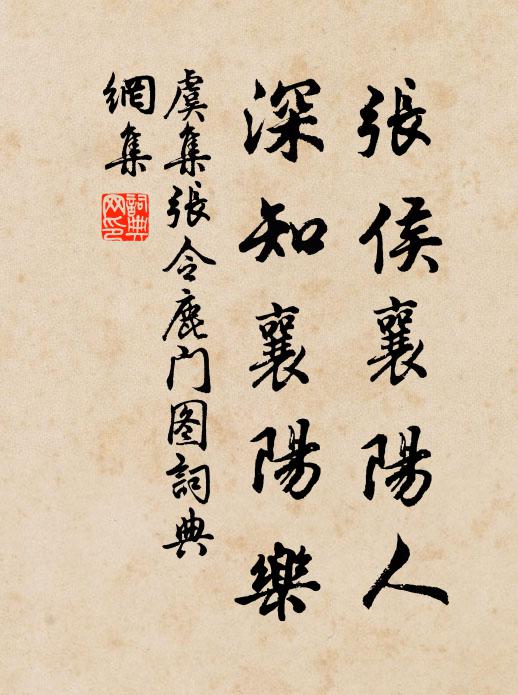 張侯襄陽人
深知襄陽樂
虞集張令鹿门图詞典
網集
詞典
网印